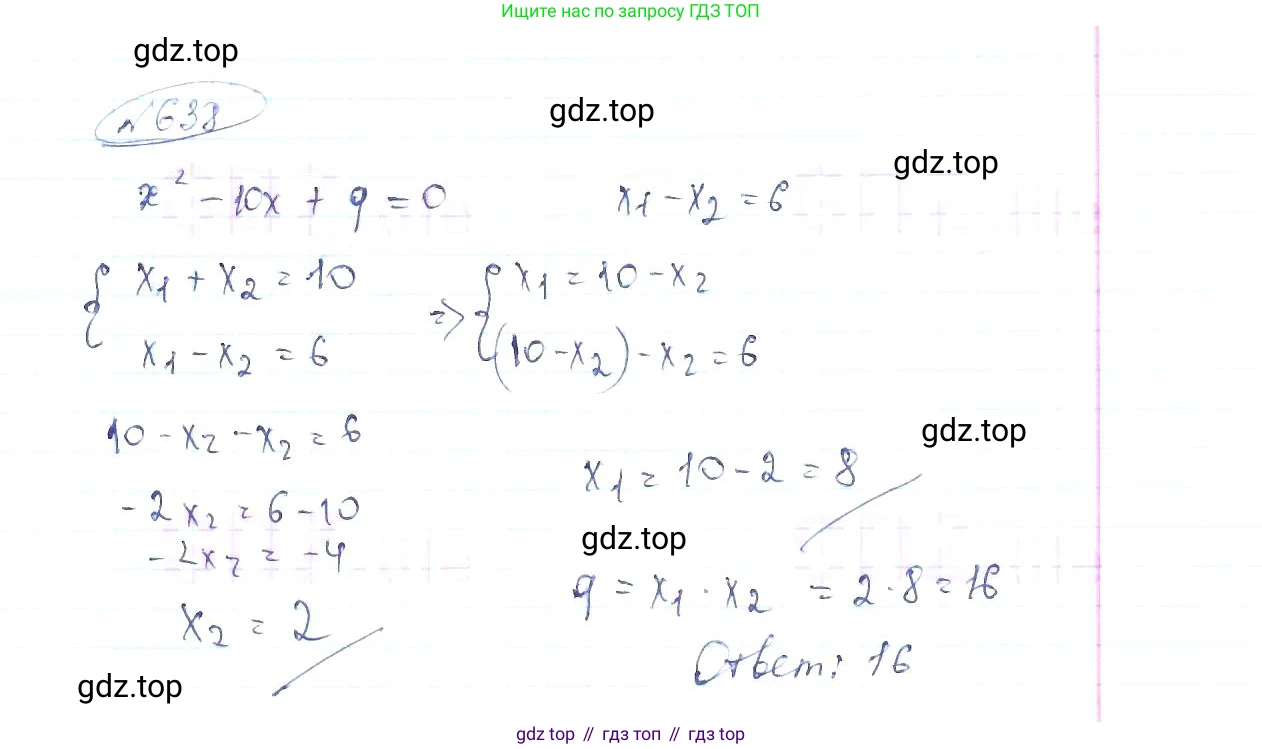 Ищите нас по запросу ГДЗ ТОП
gdz.top
№ 638
gdz.top
gdz.top
x² - 10x + q = 0
x₁ - x₂ = 6
{ x₁ + x₂ = 10
x₁ - x₂ = 6
=> { x₁ = 10 - x₂
(10 - x₂) - x₂ = 6
10 - x₂ - x₂ = 6
-2x₂ = 6 - 10
-2x₂ = -4
x₂ = 2
gdz.top
x₁ = 10 - 2 = 8
gdz.top
q = x₁ · x₂ = 2 · 8 = 16
Ответ: 16
gdz.top
gdz top // гдз топ // гдз top